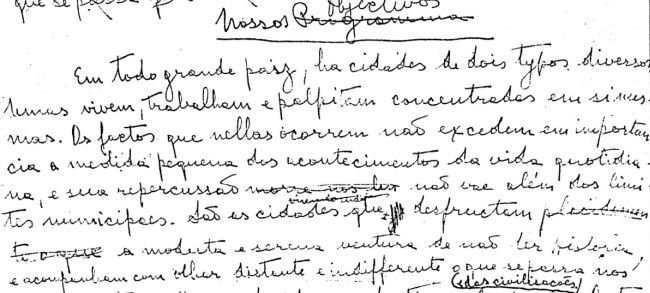 que se passa
objectivos
Nossos Programma
Em todo grande paiz, ha cidades de dois typos diversos
Humas vivem, trabalham e palpitam concentradas em si mes-
mas. Os factos que nellas ocorrem não excedem em importan
cia a medida pequena dos acontecimentos da vida quotidia-
na, e sua repercussão morre nos não vae além dos limi-
tes municipaes. São as cidades que desfructam placidamen
a modesta e serena ventura de não ter historia,
e acompanham com olhar distante e indifferente o que se passa nos
das civilisações